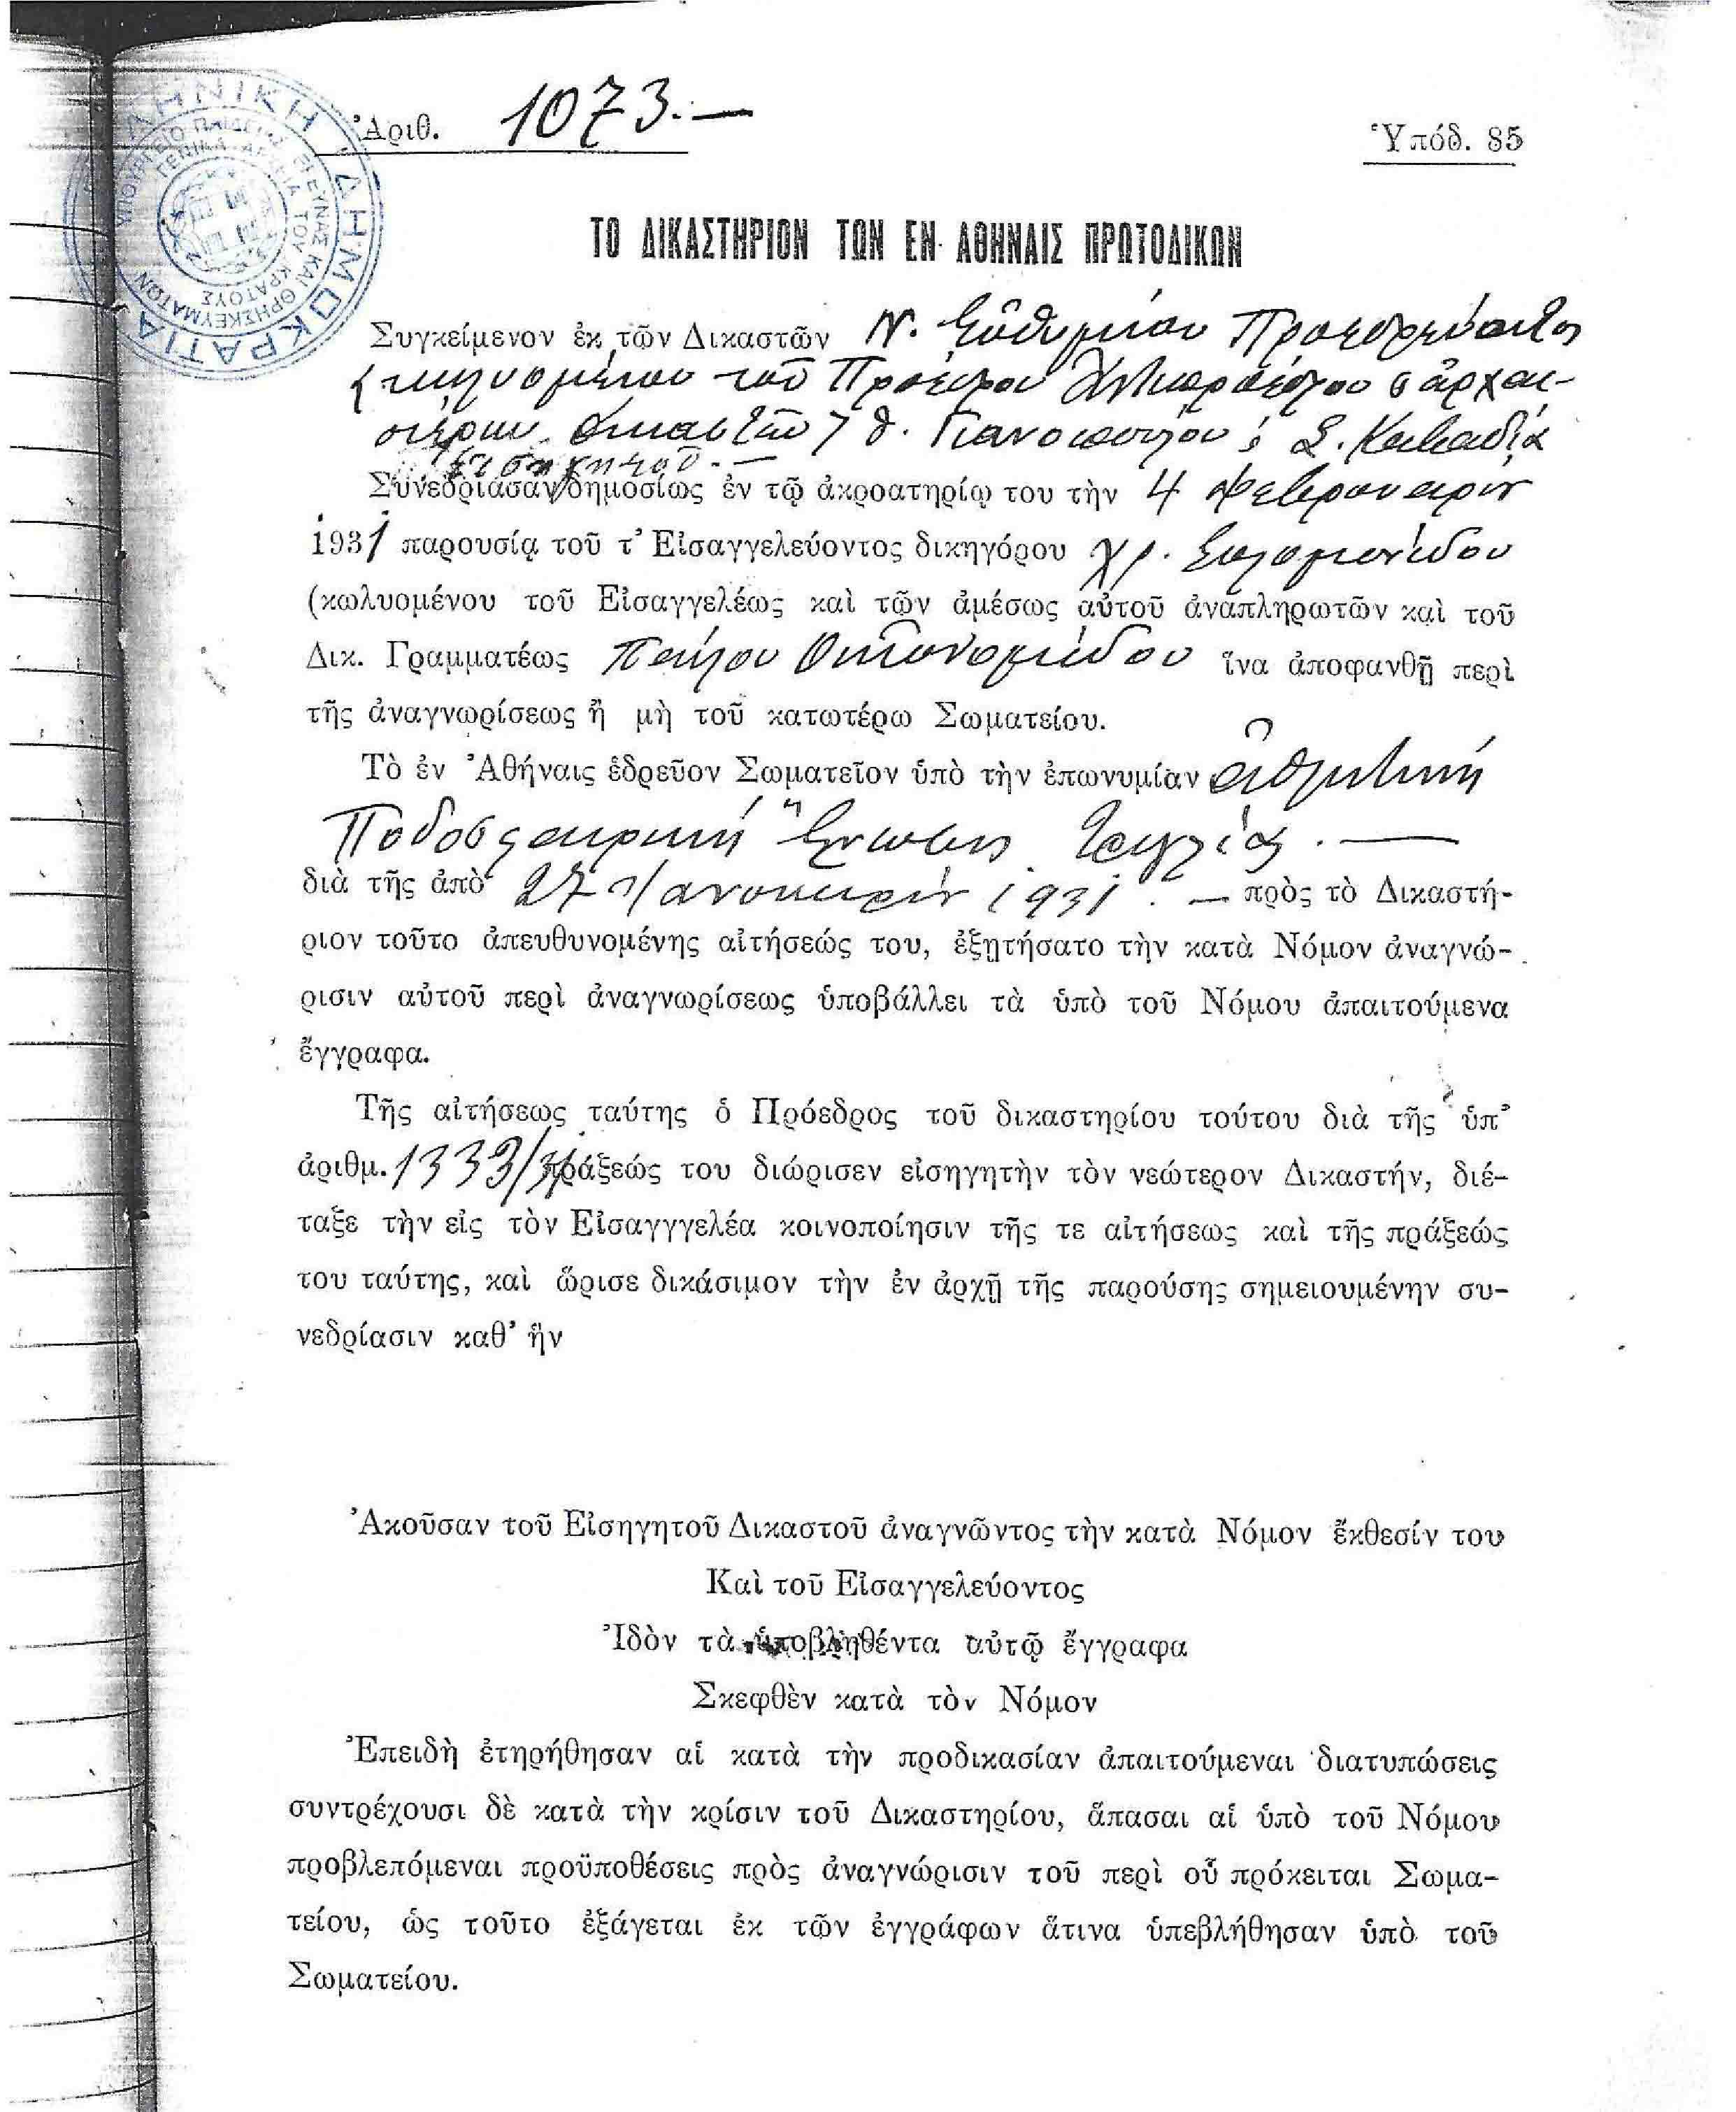 Ἀριθ. 1073.—
Ὑπόδ. 85
ΕΛΛΗΝΙΚΗ ΔΗΜΟΚΡΑΤΙΑ
ΥΠΟΥΡΓΕΙΟ ΠΑΙΔΕΙΑΣ ΕΡΕΥΝΑΣ ΚΑΙ ΘΡΗΣΚΕΥΜΑΤΩΝ
ΓΕΝΙΚΑ ΑΡΧΕΙΑ ΤΟΥ ΚΡΑΤΟΥΣ
ΤΟ ΔΙΚΑΣΤΗΡΙΟΝ ΤΩΝ ΕΝ ΑΘΗΝΑΙΣ ΠΡΩΤΟΔΙΚΩΝ
Συγκείμενον ἐκ τῶν Δικαστῶν Ν. Εὐθυμίου Προεδρεύοντος
κωλυομένου τοῦ Προέδρου ἀρχαι-
οτέρων δικαστῶν, Θ. Γιανοπούλου Σ. Καββαδία
εἰσηγητοῦ.—
Συνεδριάσαν δημοσίως ἐν τῷ ἀκροατηρίῳ του τὴν 4 Φεβρουαρίου
1931 παρουσίᾳ τοῦ τ' Εἰσαγγελεύοντος δικηγόρου Χρ. Σολομωνίδου
(κωλυομένου τοῦ Εἰσαγγελέως καὶ τῶν ἀμέσως αὐτοῦ ἀναπληρωτῶν καὶ τοῦ
Δικ. Γραμματέως Παύλου Οἰκονομίδου ἵνα ἀποφανθῇ περὶ
τῆς ἀναγνωρίσεως ἢ μὴ τοῦ κατωτέρω Σωματείου.
Τὸ ἐν Ἀθήναις ἑδρεῦον Σωματεῖον ὑπὸ τὴν ἐπωνυμίαν Ἀθλητικὴ
Ποδοσφαιρικὴ Ἕνωσις Τριγλίας.—
διὰ τῆς ἀπὸ 27 Ἰανουαρίου 1931.— πρὸς τὸ Δικαστή-
ριον τοῦτο ἀπευθυνομένης αἰτήσεώς του, ἐξῃτήσατο τὴν κατὰ Νόμον ἀναγνώ-
ρισιν αὐτοῦ περὶ ἀναγνωρίσεως ὑποβάλλει τὰ ὑπὸ τοῦ Νόμου ἀπαιτούμενα
ἔγγραφα.
Τῆς αἰτήσεως ταύτης ὁ Πρόεδρος τοῦ δικαστηρίου τούτου διὰ τῆς ὑπ'
ἀριθμ. 1333/31 πράξεώς του διώρισεν εἰσηγητὴν τὸν νεώτερον Δικαστήν, διέ-
ταξε τὴν εἰς τὸν Εἰσαγγγελέα κοινοποίησιν τῆς τε αἰτήσεως καὶ τῆς πράξεώς
του ταύτης, καὶ ὥρισε δικάσιμον τὴν ἐν ἀρχῇ τῆς παρούσης σημειουμένην συ-
νεδρίασιν καθ' ἣν
Ἀκοῦσαν τοῦ Εἰσηγητοῦ Δικαστοῦ ἀναγνῶντος τὴν κατὰ Νόμον ἔκθεσίν του
Καὶ τοῦ Εἰσαγγελεύοντος
Ἰδὸν τὰ ὑποβληθέντα αὐτῷ ἔγγραφα
Σκεφθὲν κατὰ τὸν Νόμον
Ἐπειδὴ ἐτηρήθησαν αἱ κατὰ τὴν προδικασίαν ἀπαιτούμεναι διατυπώσεις
συντρέχουσι δὲ κατὰ τὴν κρίσιν τοῦ Δικαστηρίου, ἅπασαι αἱ ὑπὸ τοῦ Νόμου
προβλεπόμεναι προϋποθέσεις πρὸς ἀναγνώρισιν τοῦ περὶ οὗ πρόκειται Σωμα-
τείου, ὡς τοῦτο ἐξάγεται ἐκ τῶν ἐγγράφων ἅτινα ὑπεβλήθησαν ὑπὸ τοῦ
Σωματείου.